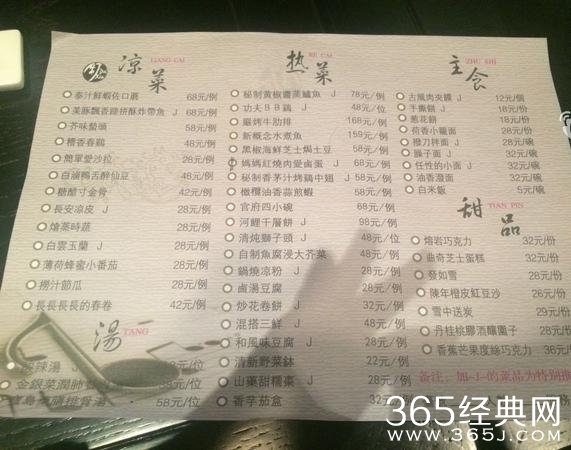 凉菜
LIANG CAI
泰汁鮮蝦佐口蘑 68元/例
美豚飄香蹄拼酥炸帶魚 J 68元/例
芥味螯頭 58元/例
糟香春鷄 48元/例
簡單愛沙拉 28元/例
白滷鴨舌醉仙豆 48元/例
糖醋寸金骨 42元/例
長安凉皮 J 28元/例
熗蒸時蔬 28元/例
白雲玉蘭 J 28元/例
薄荷蜂蜜小番茄 28元/例
撈汁節瓜 28元/例
長長長長的春卷 42元/例
湯
TANG
酸辣湯 J
元/位
58元/位
热菜
RE CAI
秘制黄椒醬蒸鱸魚 J 78元/例
功夫BB鷄 J 48元/位
嚴烤牛肋排 168元/例
新概念水煮魚 159元/例
黑椒海鮮芝士焗土豆 58元/例
媽媽紅燒肉愛鹵蛋 J 68元/例
秘制香茅汁烤鷄中翅 J 58元/例
橄欖油香蒜煎蝦 58元/例
官府四小碗 69元/例
河鯉千層餅 J 98元/例
清炖獅子頭 J 48元/位
自制魚腐浸大芥菜 J 48元/例
鍋燒凉粉 J 28元/例
鹵湯豆腐 28元/例
炒花卷餅 J 32元/例
混搭三鮮 J 48元/例
和風味豆腐 J 28元/例
清新野菜鉢 22元/例
山藥甜糯棗 J 28元/例
香芋茄盒 32元/例
主食
ZHU SHI
古風肉夾饃 J 12元/個
手撕餅 J 18元/份
葱花餅 18元/份
荷香小籠面 28元/份
撥刀拌面 J 28元/份
臊子面 J 32元/碗
任性的小面 J 32元/碗
油香潑面 32元/碗
白米飯 5元/碗
甜品
TIAN PIN
熔岩巧克力 32元/份
曲奇芝士蛋糕 32元/份
發如雪 28元/份
陳年橙皮紅豆沙 26元/份
雪中送炭 29元/份
丹桂桃膠酒釀圓子 28元/份
香蕉芒果度絲巧克力 36元/份
備注：加-J-的菜品为特别推
365经典网
www.365J.com